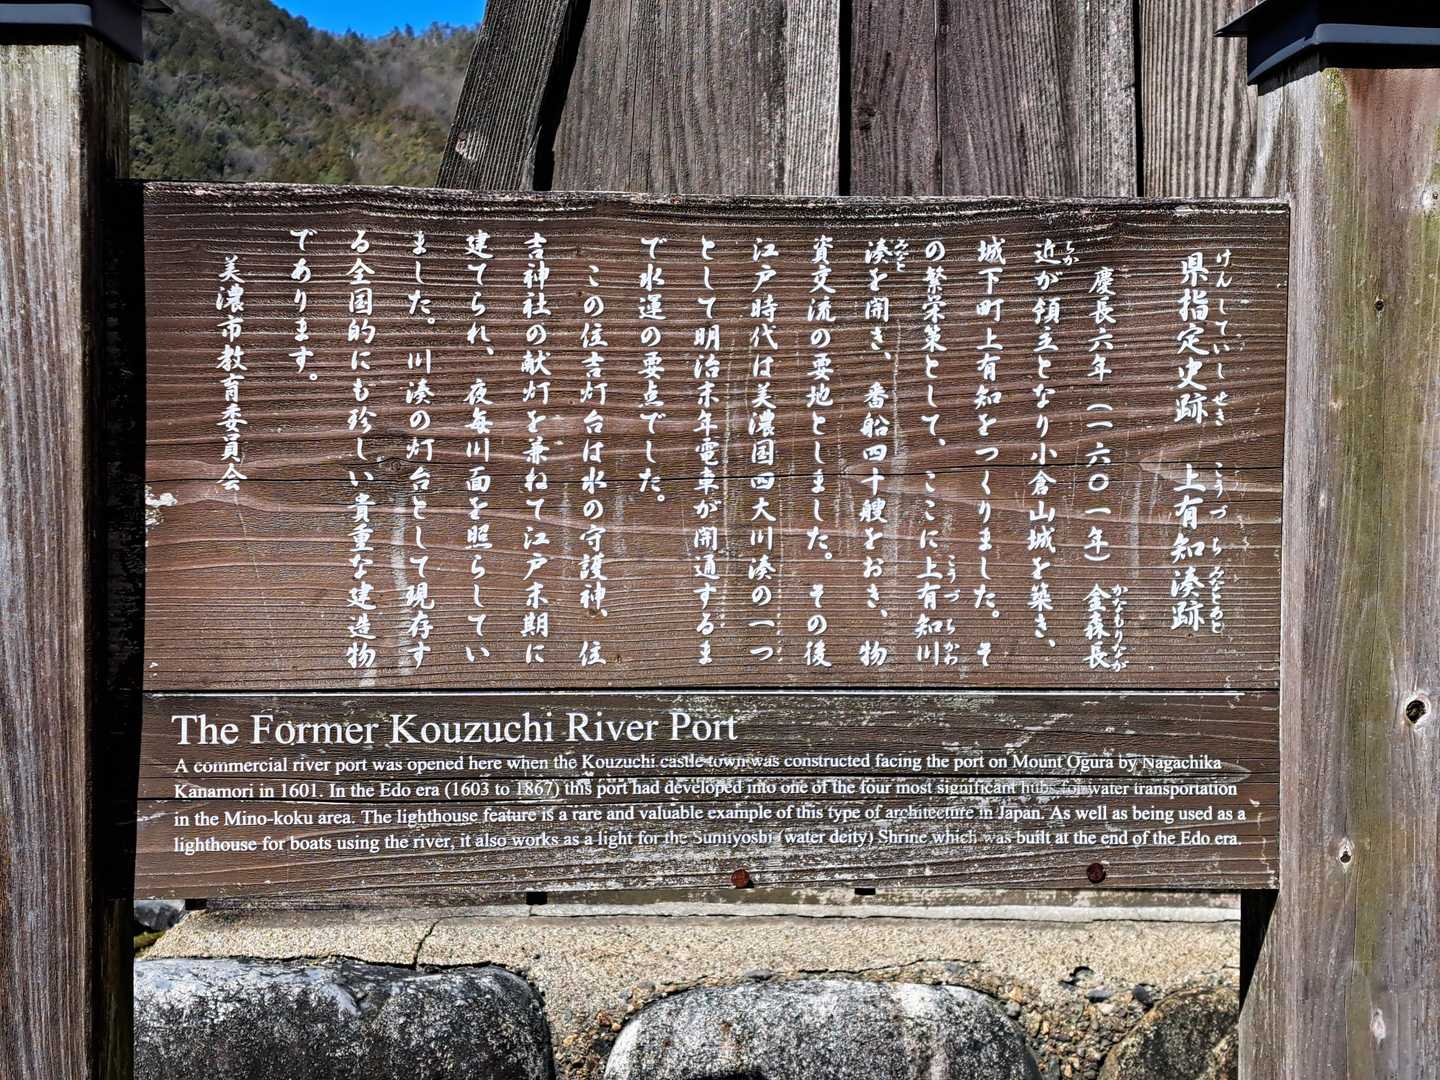 県指定史跡　上有知湊跡
慶長六年（一六〇一年）金森長
近が領主となり小倉山城を築き、
城下町上有知をつくりました。そ
の繁栄策として、ここに上有知川
湊を開き、番船四十艘をおき、物
資交流の要地としました。その後
江戸時代は美濃国四大川湊の一つ
として明治末年電車が開通するま
で水運の要点でした。
この住吉灯台は水の守護神、住
吉神社の献灯を兼ねて江戸末期に
建てられ、夜毎川面を照らしてい
ました。川湊の灯台として現存す
る全国的にも珍しい貴重な建造物
であります。
美濃市教育委員会
The Former Kouzuchi River Port
A commercial river port was opened here when the Kouzuchi castle-town was constructed facing the port on Mount Ogura by Nagachika
Kanamori in 1601. In the Edo era (1603 to 1867) this port had developed into one of the four most significant hubs for water transportation
in the Mino-koku area. The lighthouse feature is a rare and valuable example of this type of architecture in Japan. As well as being used as a
lighthouse for boats using the river, it also works as a light for the Sumiyoshi (water deity) Shrine which was built at the end of the Edo era.